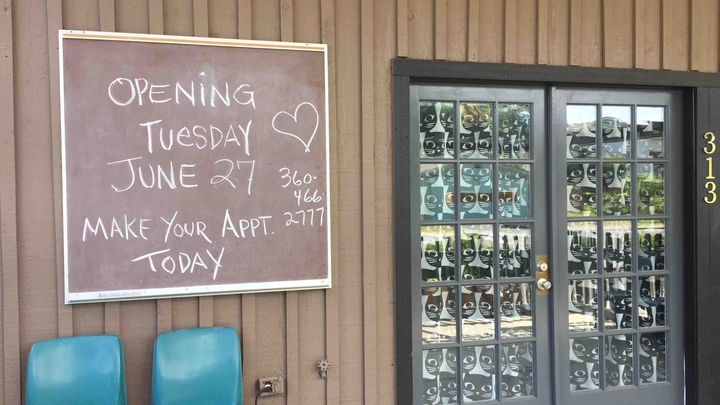 OPENING
TUESDAY
JUNE 27
360-
466-
2777
MAKE YOUR APPT.
TODAY
313